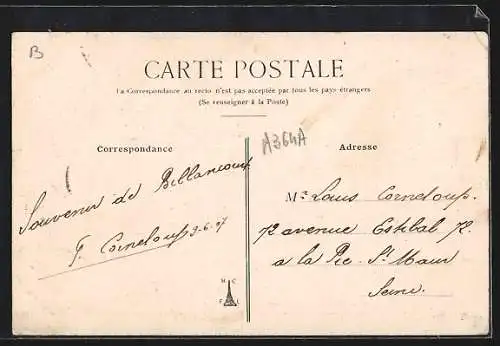 B
CARTE POSTALE
La Correspondance au recto n'est pas acceptée par tous les pays étrangers
(Se renseigner à la Poste)
A364A
Correspondance
Souvenir de Billancourt
F. Corneloup 9-6-07
N C
F L
Adresse
Mr Louis Corneloup.
72 avenue 72.
a la Pie. St Maur
Seine.